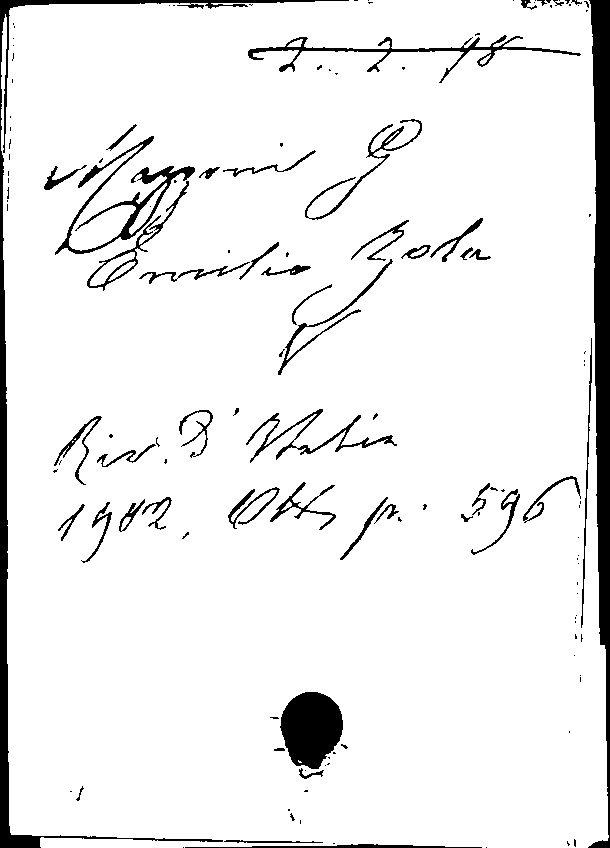 2. 2. 98
Mazzoni G
Emilio Zola
Riv. D'Italia
1902, Ott, p. 596